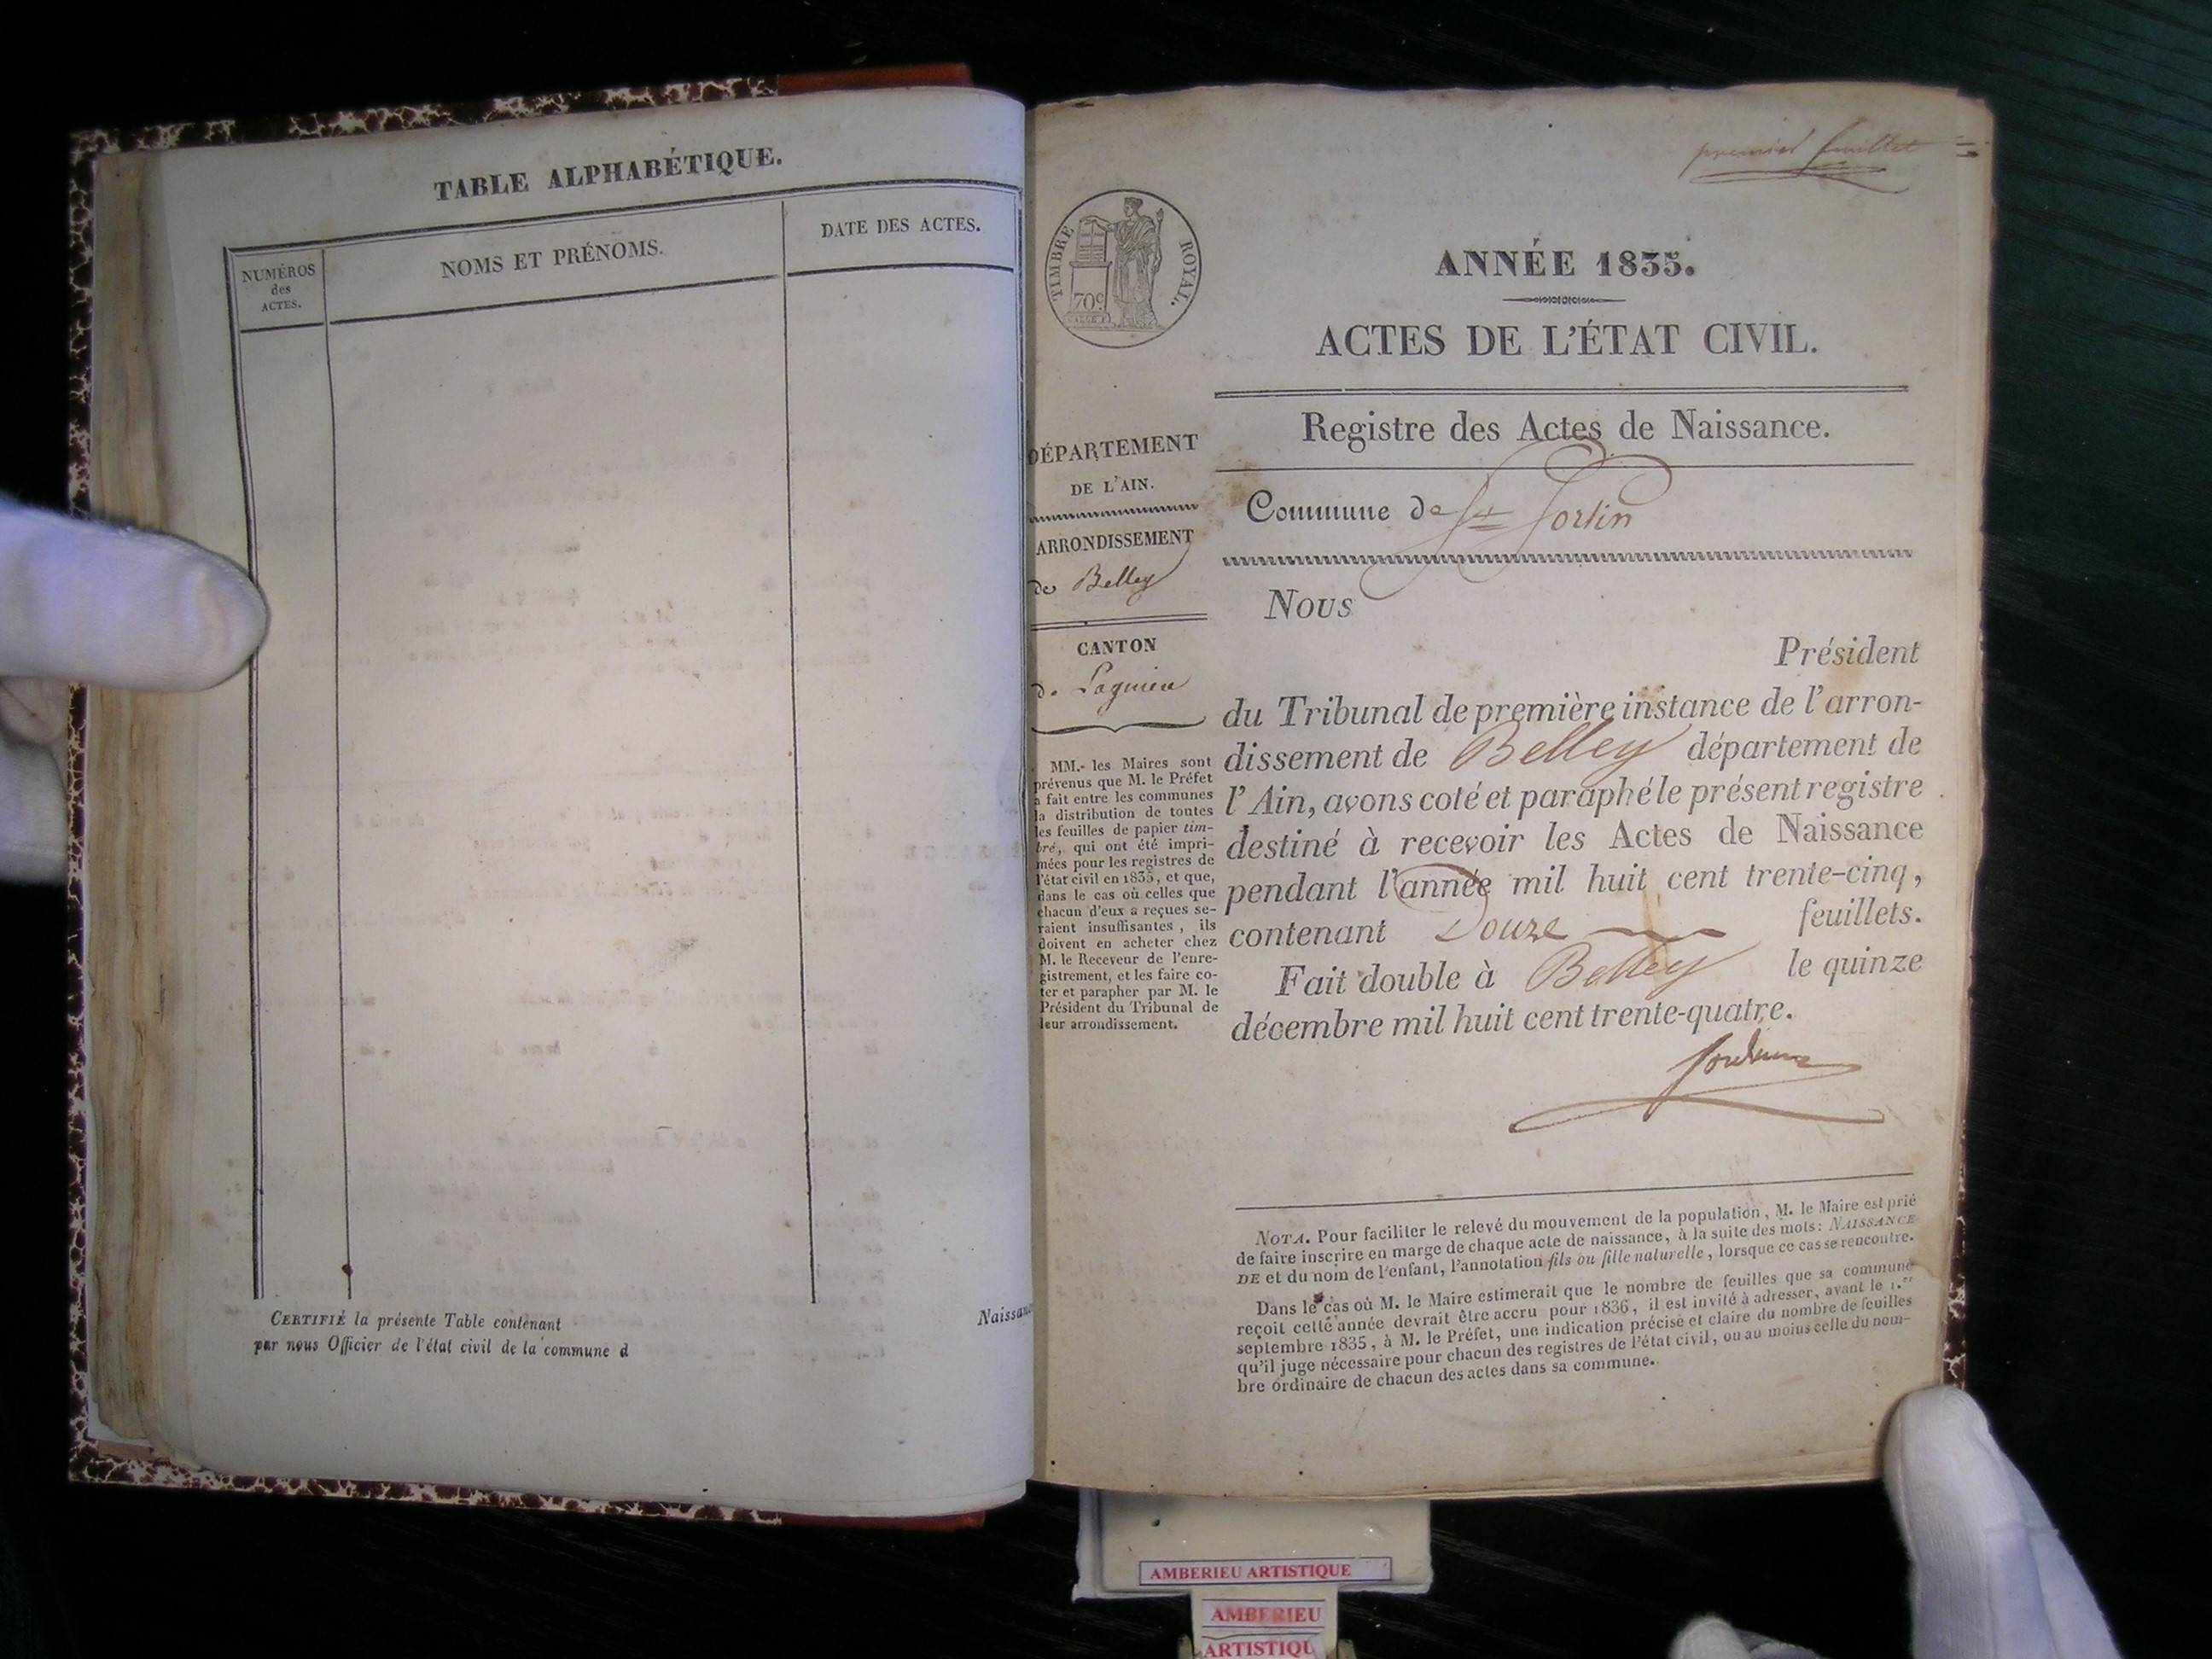 TABLE ALPHABÉTIQUE.
NUMÉROS
des
ACTES.
NOMS ET PRÉNOMS.
DATE DES ACTES.
CERTIFIÉ la présente Table contenant
par nous Officier de l'état civil de la commune d
Naissan
premier feuillet
TIMBRE ROYAL.
70c
DÉPARTEMENT
DE L'AIN.
ARRONDISSEMENT
de Belley
CANTON
de Lagnieu
MM. les Maires sont
prévenus que M. le Préfet
a fait entre les communes
la distribution de toutes
les feuilles de papier tim-
bré, qui ont été impri-
mées pour les registres de
l'état civil en 1835, et que,
dans le cas où celles que
chacun d'eux a reçues se-
raient insuffisantes, ils
doivent en acheter chez
M. le Receveur de l'enre-
gistrement, et les faire co-
ter et parapher par M. le
Président du Tribunal de
leur arrondissement.
ANNÉE 1835.
ACTES DE L'ÉTAT CIVIL.
Registre des Actes de Naissance.
Commune de St Sorlin
Nous
Président
du Tribunal de première instance de l'arron-
dissement de Belley département de
l'Ain, avons coté et paraphé le présent registre
destiné à recevoir les Actes de Naissance
pendant l'année mil huit cent trente-cinq,
contenant Douze feuillets.
Fait double à Belley le quinze
décembre mil huit cent trente-quatre.
NOTA. Pour faciliter le relevé du mouvement de la population, M. le Maire est prié
de faire inscrire en marge de chaque acte de naissance, à la suite des mots: NAISSANCE
DE et du nom de l'enfant, l'annotation fils ou fille naturelle, lorsque ce cas se rencontre.
Dans le cas où M. le Maire estimerait que le nombre de feuilles que sa commune
reçoit cette année devrait être accru pour 1836, il est invité à adresser, avant le 1.er
septembre 1835, à M. le Préfet, une indication précise et claire du nombre de feuilles
qu'il juge nécessaire pour chacun des registres de l'état civil, ou au moins celle du nom-
bre ordinaire de chacun des actes dans sa commune.
AMBERIEU ARTISTIQUE
AMBERIEU
ARTISTIQU